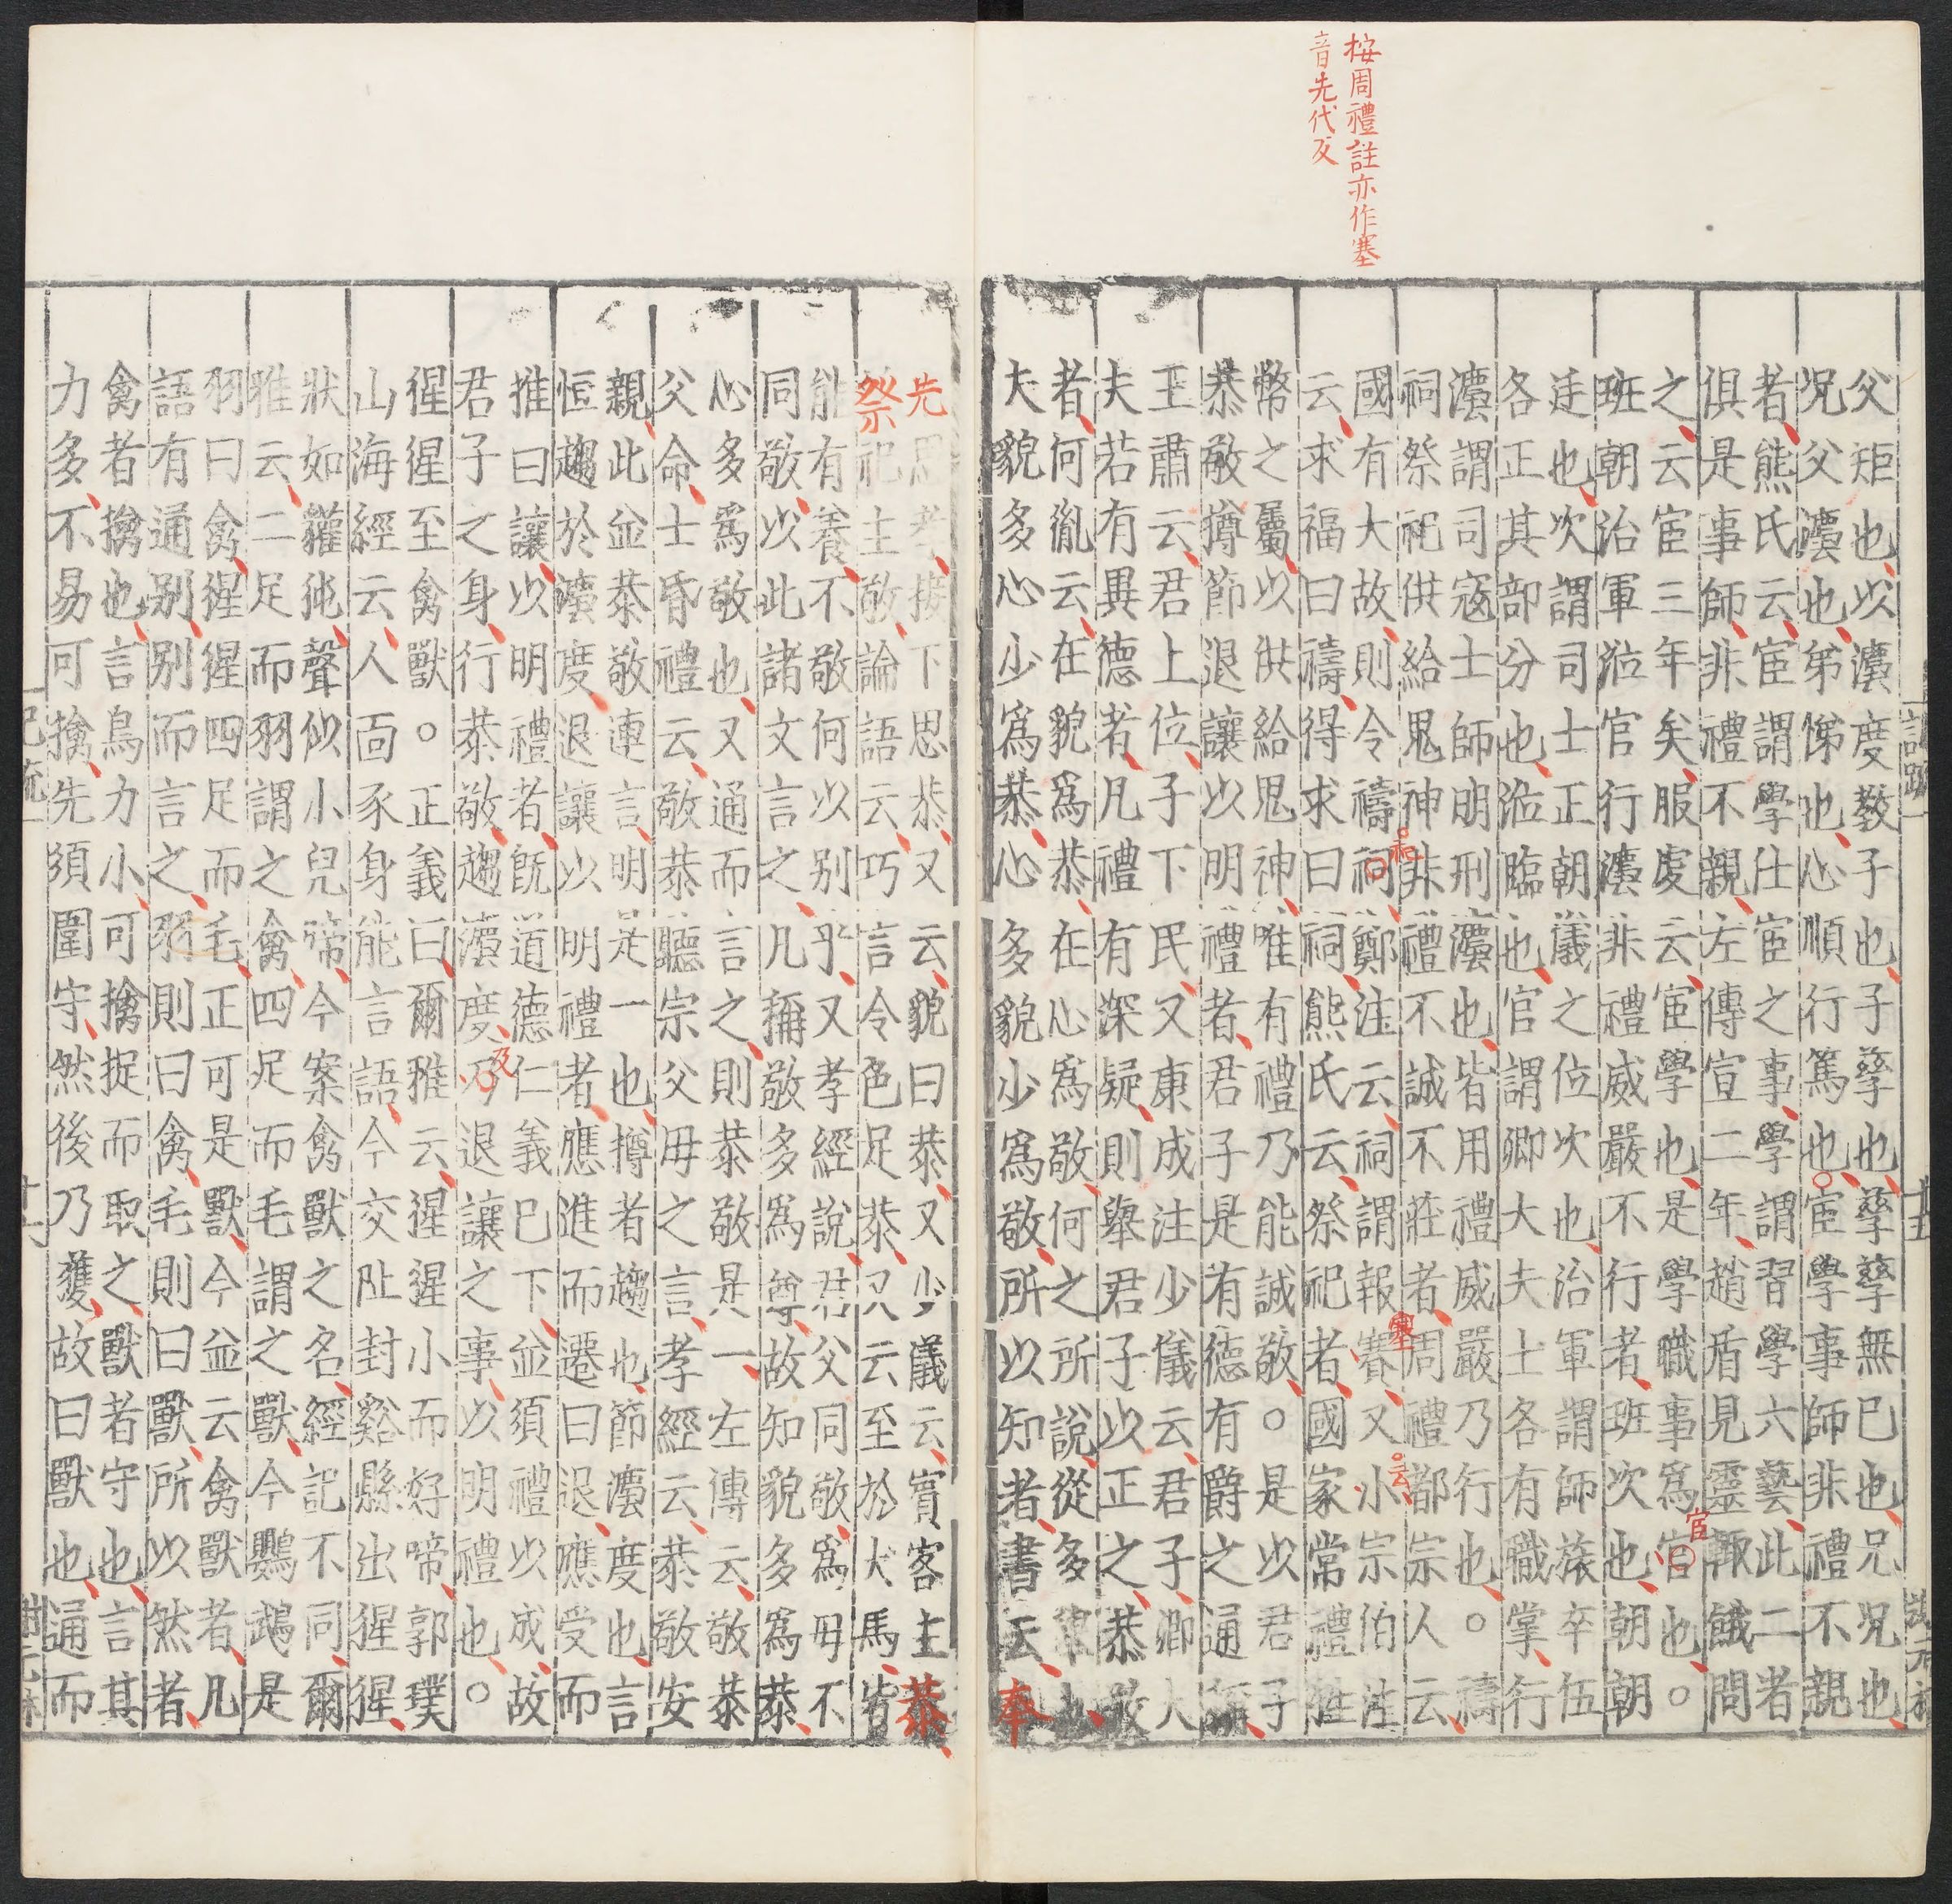 按周禮註亦作塞
音先代反
父矩也以灋度教子也子孳也孳孳無已也兄況也
況父灋也弟悌也心順行篤也宦學事師非禮不親
者熊氏云宦謂學仕宦之事學謂習學六藝此二者
俱是事師非禮不親左傳宣二年趙盾見靈輒餓問
之云宦三年矣服虔云宦學也是學職事爲官也○
宦
班朝治軍涖官行灋非禮威嚴不行者班次也朝朝
廷也次謂司士正朝儀之位次也治軍謂師旅卒伍
各正其部分也涖臨也官謂卿大夫士各有職掌行
灋謂司寇士師明刑灋也皆用禮威嚴乃行也○禱
祠祭祀供給鬼神非禮不誠不莊者周禮都宗人云
國有大故則令禱祠鄭注云祠謂報賽又小宗伯注
祀
塞
云
云求福曰禱得求曰祠熊氏云祭祀者國家常禮牲
幣之屬以供給鬼神唯有禮乃能誠敬○是以君子
恭敬撙節退讓以明禮者君子是有德有爵之通稱
王肅云君上位子下民又康成注少儀云君子卿大
夫若有異德者凡禮有深疑則舉君子以正之恭敬
者何胤云在貌爲恭在心爲敬何之所說從多
夫貌多心少爲恭心多貌少爲敬所以知者書云奉
先思孝接下思恭又云貌曰恭又少儀云賓客主恭
祭祀主敬論語云巧言令色足恭又云至於犬馬皆
能有養不敬何以别乎又孝經說君父同敬爲母不
同敬以此諸文言之凡稱敬多爲尊故知貌多爲恭
心多爲敬也又通而言之則恭敬是一左傳云敬恭
父命士昏禮云敬恭聽宗父母之言孝經云恭敬安
親此並恭敬連言明是一也撙者趨也節灋度也言
恒趨於灋度退讓以明禮者應進而遷曰退應受而
推曰讓以明禮者旣道德仁義已下並須禮以成故
君子之身行恭敬趨灋度乃退讓之事以明禮也○
及
猩猩至禽獸○正義曰爾雅云猩猩小而好啼郭璞
山海經云人面豕身能言語今交阯封谿縣出猩猩
狀如貛㹠聲似小兒啼今案禽獸之名經記不同爾
雅云二足而羽謂之禽四足而毛謂之獸今鸚鵡是
羽曰禽猩猩四足而毛正可是獸今並云禽獸者凡
語有通别别而言之羽則曰禽毛則曰獸所以然者
禽者擒也言鳥力小可擒捉而取之獸者守也言其
力多不易可擒先須圍守然後乃獲故曰獸也通而